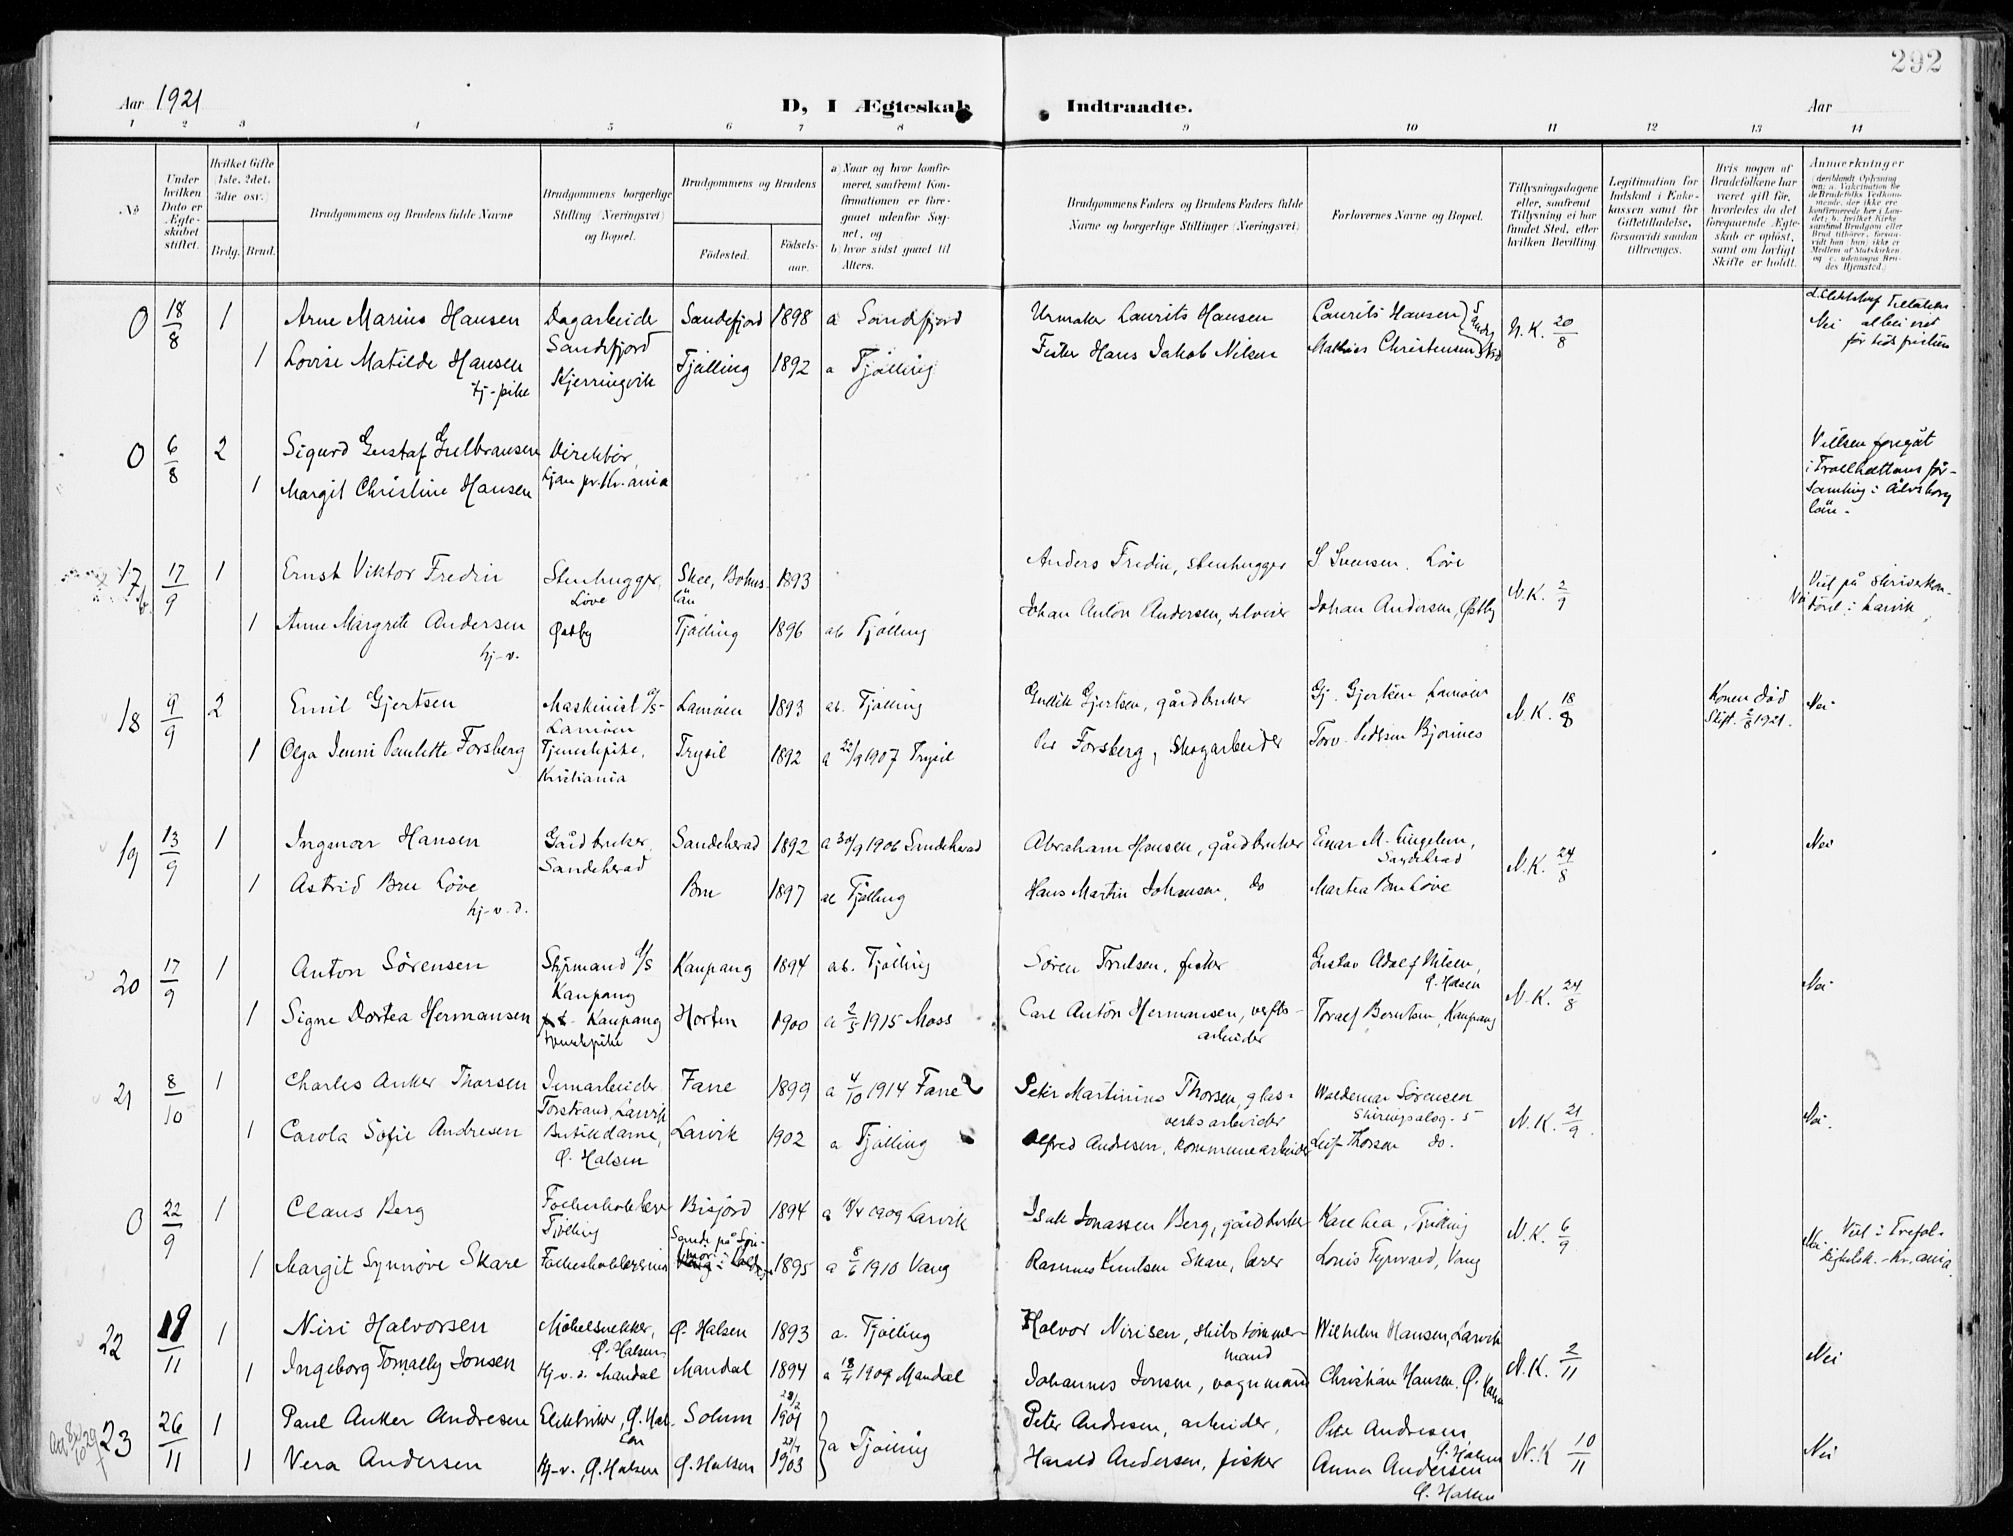 292
Aar 1921
D, I Ægteskab Indtraadte.
Aar
1 2 3 4 5 6 7 8 9 10 11 12 13 14
No.
Under hvilken Dato er Ægteskabet stiftet.
Hvilket Gifte (1ste, 2det, 3die osv.)
Brdg. Brud.
Brudgommens og Brudens fulde Navne
Brudgommens borgerlige Stilling (Næringsvei) og Bopæl.
Brudgommens og Brudens
Fødested.
Fødselsaar.
a) Naar og hvor konfirmeret, saafremt Konfirmationen er foregaaet udenfor Sognet, og
b) hvor sidst gaaet til Alters.
Brudgommens Faders og Brudens Faders fulde Navne og borgerlige Stillinger (Næringsvei)
Forlovernes Navne og Bopæl.
Tillysningsdagene eller, saafremt Tillysning ei har fundet Sted, efter hvilken Bevilling
Legitimation for Indskud i Enkekassen samt for Giftetilladelse, forsaavidt saadan tiltrænges.
Hvis nogen af Brudefolkene har været gift før, hvorledes da det foregaaende Ægteskab er opløst, samt om lovligt Skifte er holdt.
Anmerkninger
0 18/8 1 Arne Marius Hansen Dagarbeider Sandefjord Sandefjord 1898 a Sandefjord Urmaker Laurits Hansen Laurits Hansen N.K. 20/8 Nei
1 Lovise Matilde Hansen hj-pike Skjerringvik Tjølling 1892 a Tjølling Fisker Hans Jakob Nilsen Mathias Christensen
0 6/8 2 Sigurd Gustaf Gulbransen Direktør, Ljan pr. Kr.ania
1 Margit Christine Hansen
Vielsen foregåt i Trollhättans församling i Älvsborg län.
17 17/9 1 Ernst Viktor Fredin Stenhugger, Løve Skee, Bohus län 1893 Anders Fredin, stenhugger S Svensen, Løve N.K. 2/9 Nei Viet på skriverkontoret i Larvik
1 Anne Margrete Andersen hj-v. Østby Tjølling 1896 ab Tjølling Johan Anton Andersen, Johan Andersen, Østby
18 9/9 2 Emil Gjertsen Maskinist d/s Lamøen Lamøen 1893 ab. Tjølling Gullik Gjertsen, gårdbruker Gj. Gjertsen Lamøen N.K. 18/8 Konen død Skift. 2/8 1921. Nei
1 Olga Jenni Paulette Forsberg Tjenestepike, Kristiania Trysil 1892 a 22/9 1907 Trysil Per Forsberg, Skogarbeider Torv. Pedersen Bjønnes
19 13/9 1 Ingmar Hansen Gårdbruker, Sandeherad Sandeherad 1892 a 30/9 1906 Sandeherad Abraham Hansen, gårdbruker Einar M. Sandeherad N.K. 24/8 Nei
1 Astrid Bru Løve hj-v.d. Bru 1897 ab Tjølling Hans Martin Johansen, do Martea Bru Løve
20 17/9 1 Anton Sørensen Styrmand d/s Kaupang Kaupang 1894 ab. Tjølling Søren Trulsen, fisker Gustav Adolf Nilsen, Ø. Halsen N.K. 24/8 Nei
1 Signe Dortea Hermansen Kaupang tjenestepike Horten 1900 a 2/5 1915 Moss Carl Anton Hermansen, verftsarbeider Toralf Berntsen, Kaupang
21 8/10 1 Charles Anker Thorsen Jernarbeider Torstrand, Larvik Fane 1899 a 4/10 1914 Fane Peter Martinius Thorsen, glasverksarbeider Waldemar Sørensen Skiringsalsg. 5 N.K. 21/9 Nei.
1 Carola Sofie Andresen Butikdame, Ø. Halsen Larvik 1902 a Tjølling Alfred Andresen, kommunearbeider Leif Thorsen do.
0 22/9 1 Claus Berg Folkeskolelærer Tjølling Bisjord 1894 a 18/4 1909 Larvik Isak Jonassen Berg, gårdbruker Kare Lea, Tjølling N.K. 6/9 Nei Viet i Trefoldighetsk. Kr.ania.
1 Margit Synnøve Skare Folkeskolelærerinne Sande på Sønmøre 1895 a 5/6 1910 Vang Rasmus Knutsen Skare, lærer Louis Vang
22 19/11 1 Niri Halvorsen Møbelsnekker, Ø. Halsen Ø. Halsen 1893 a. Tjølling Halvor Nirisen, skibstømmermand Wilhelm Hansen, Larvik N.K. 2/11 Nei
1 Ingeborg Tomally Jonsen Hj-v.d. Mandal Mandal 1894 a 18/4 1909 Mandal Johannes Jonsen, vognmand Christian Hansen Ø. Halsen
23 26/11 1 Paul Anker Andresen Elektriker, Ø. Halsen Solum 1901 a Tjølling Peter Andresen, arbeider, Peter Andresen, Ø. Halsen N.K 10/11 Nei
1 Vera Andersen Hj-v., Ø. Halsen Ø. Halsen 1903 Harald Andersen, fisker Anna Andersen Ø. Halsen